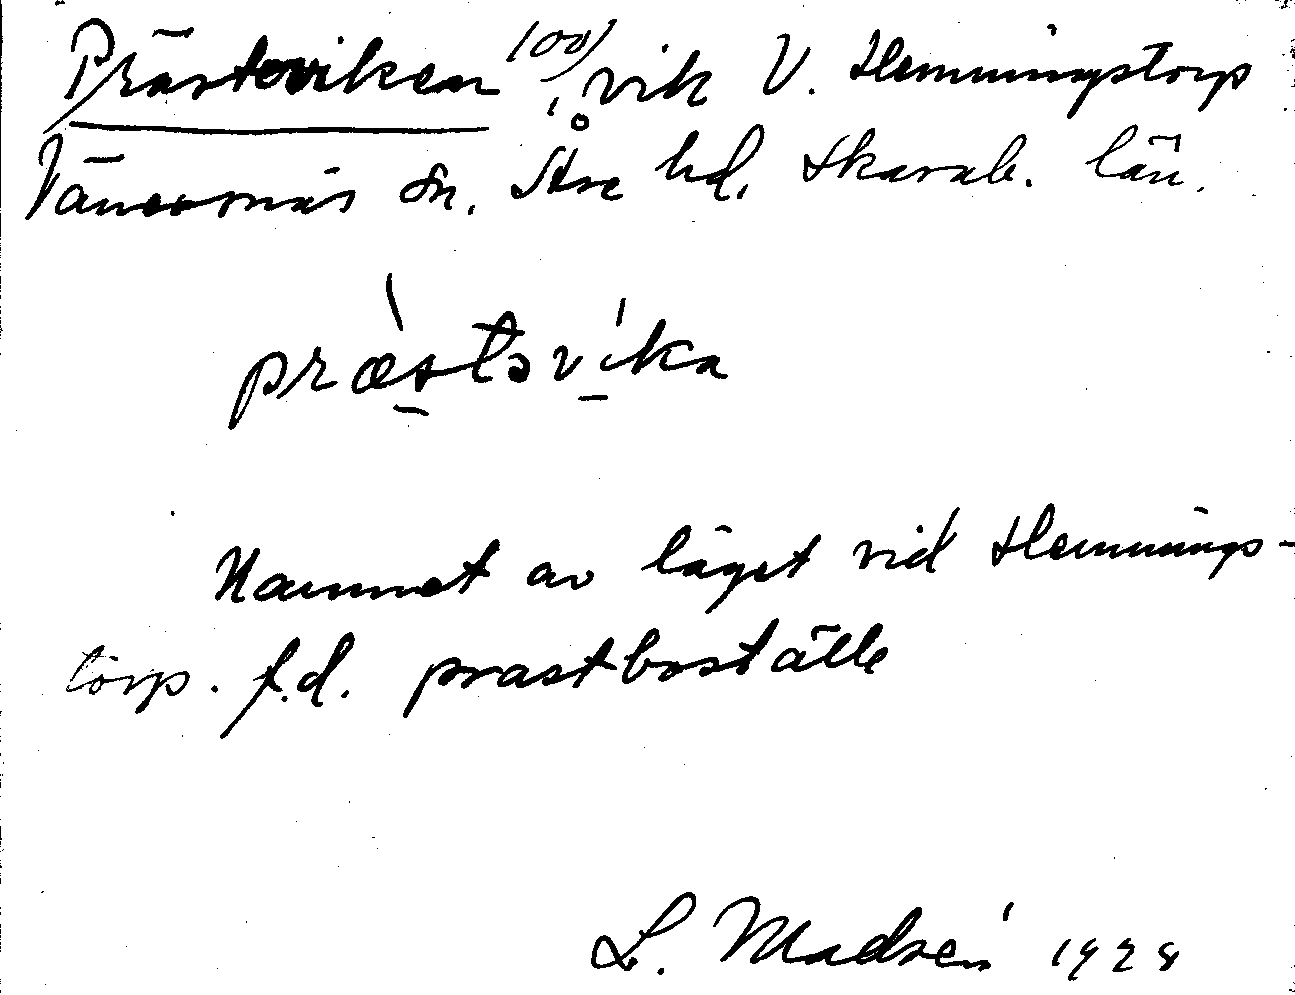 Prästeviken 100), vik V. Hemmingstorp
Vänersnäs sn. Åse hd. Skarab. län.
præstsvika
Namnet av läget vid Hemmings-
torp. f.d. prastboställe
L. Madsén 1928